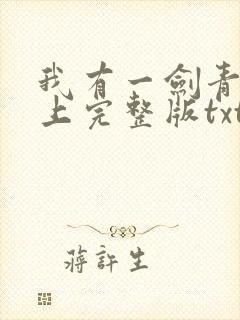 我有一剑青
上完整版txt
蒋許生